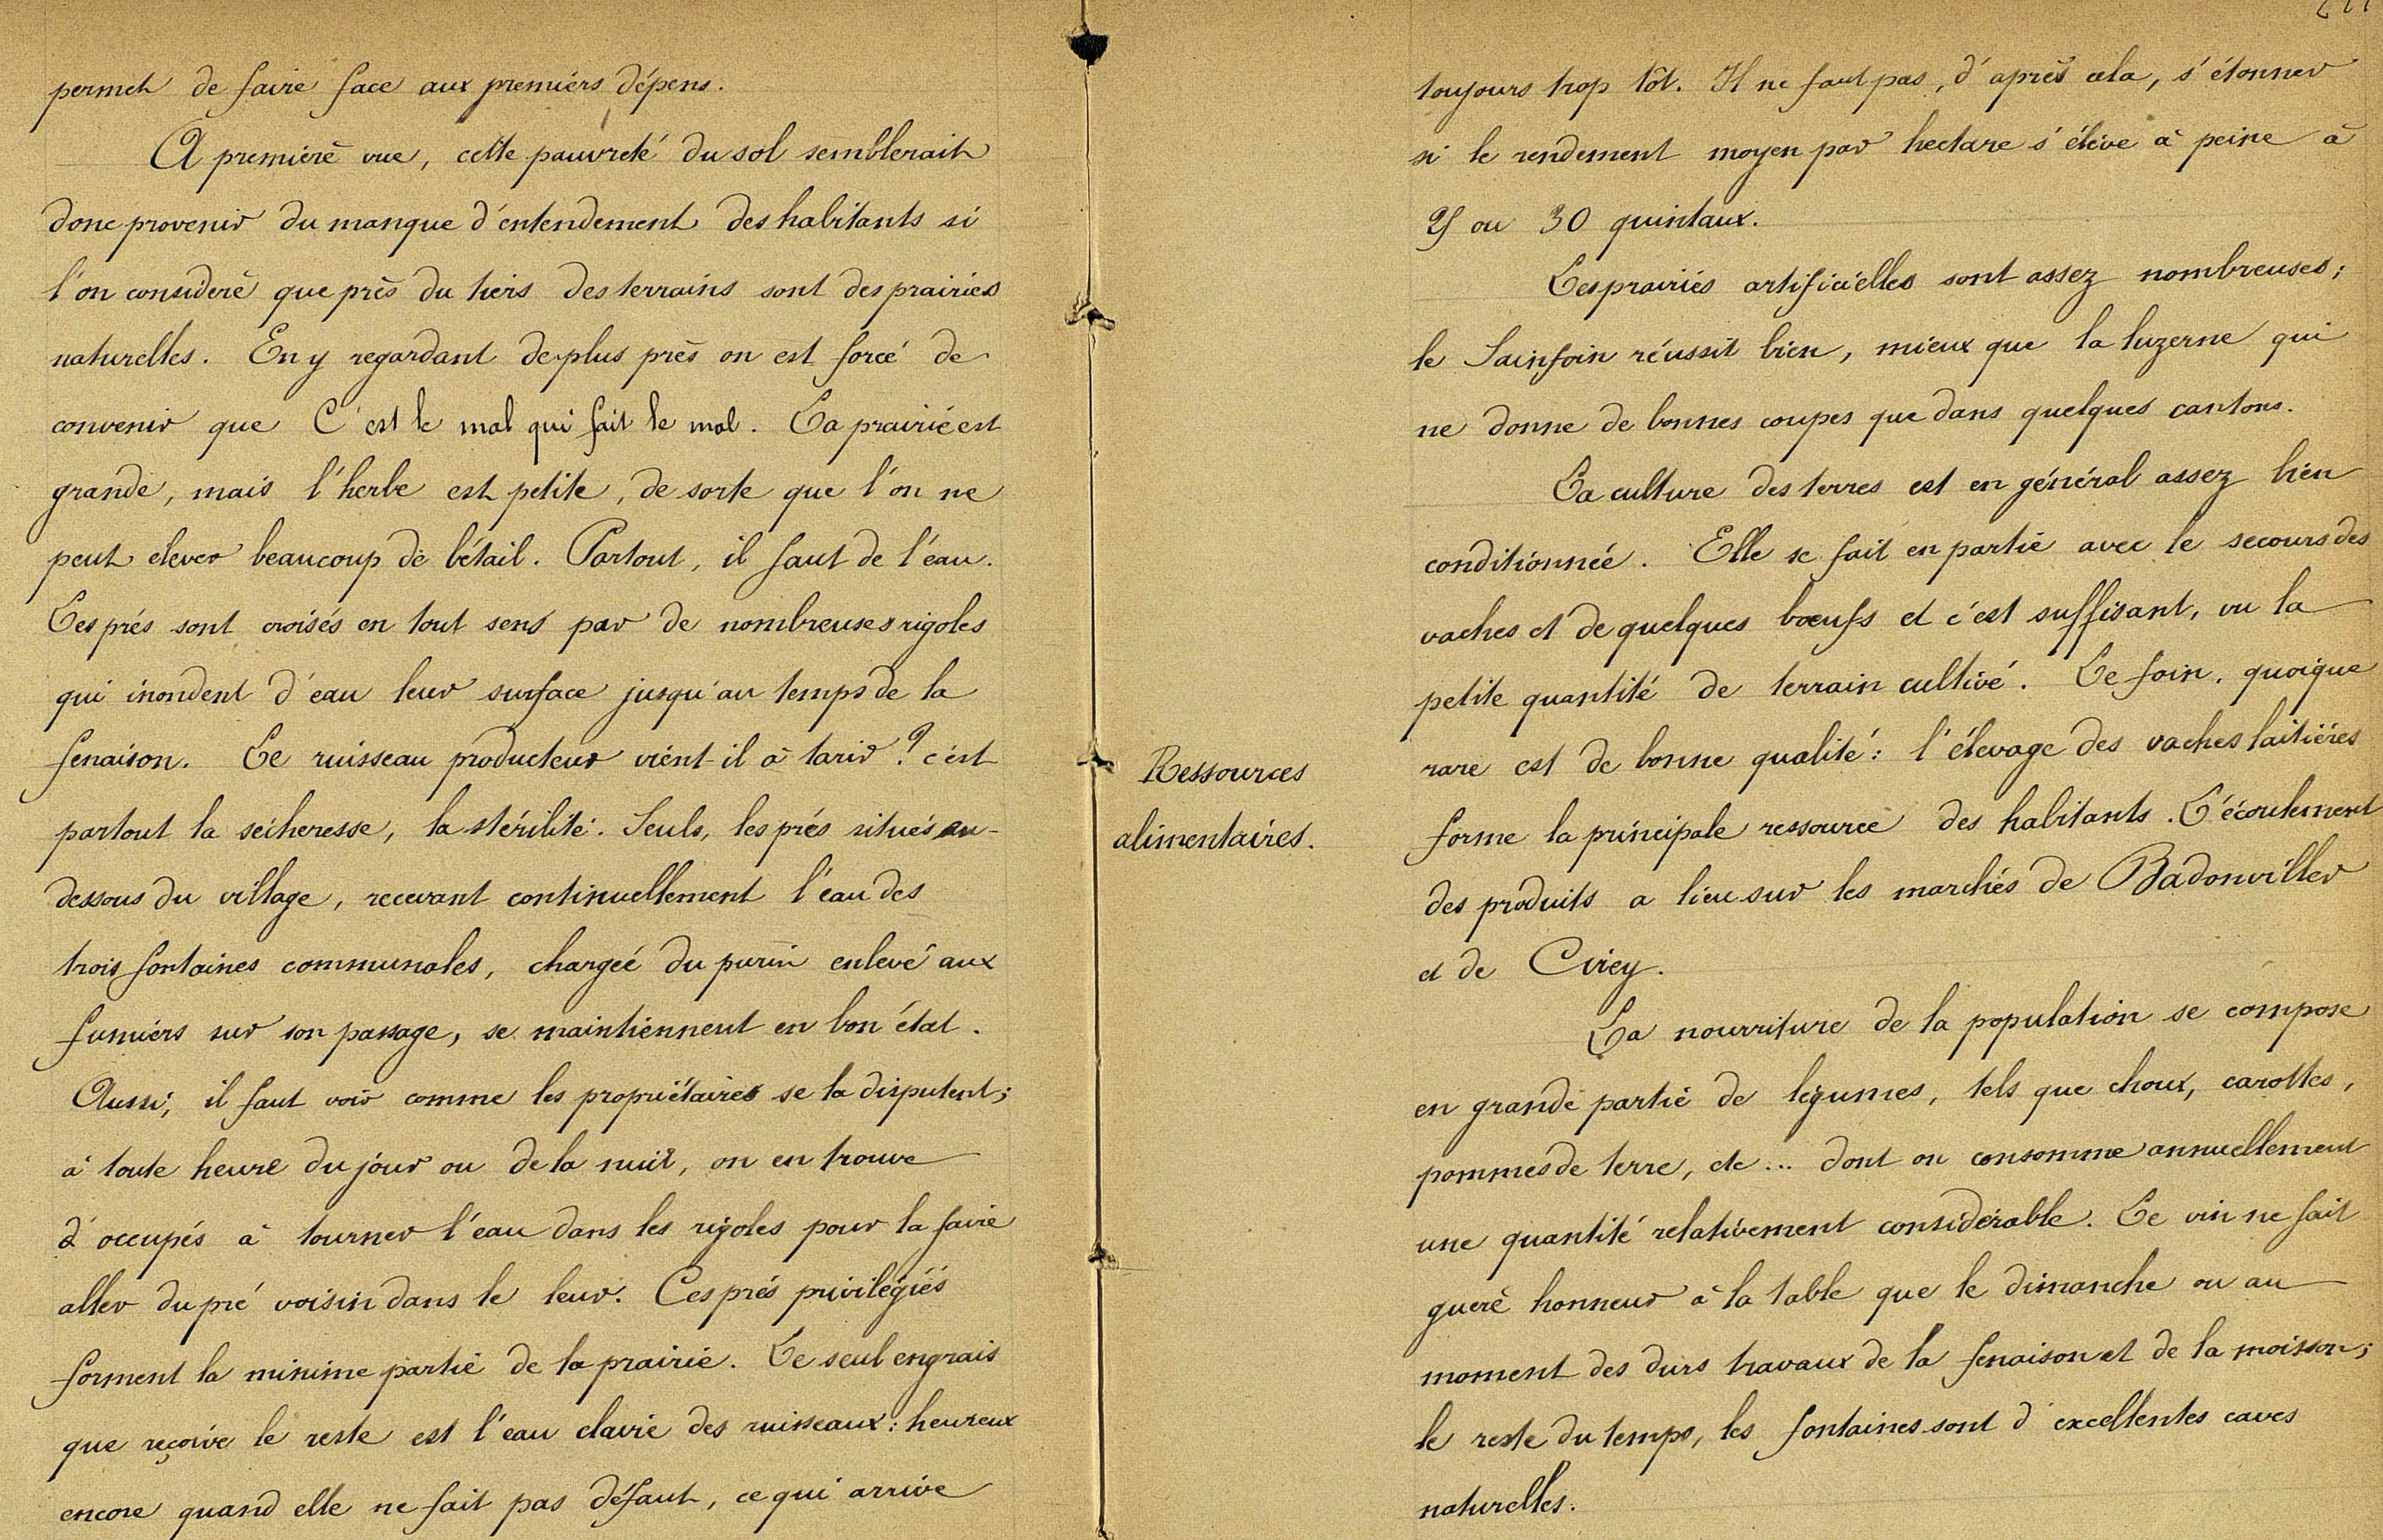 permet de faire face aux premiers dépens.
A première vue, cette pauvreté du sol semblerait
donc provenir du manque d'entendement des habitants si
l'on considère que près du tiers des terrains sont des prairies
naturelles. En y regardant de plus près on est forcé de
convenir que C'est le mal qui fait le mal. La prairie est
grande, mais l'herbe est petite, de sorte que l'on ne
peut elever beaucoup de bétail. Partout, il faut de l'eau.
Les prés sont croisés en tout sens par de nombreuses rigoles
qui inondent d'eau leur surface jusqu'au temps de la
fenaison. Le ruisseau producteur vient-il à tarir ? c'est
partout la sécheresse, la stérilité. Seuls, les prés situés au-
dessous du village, recevant continuellement l'eau des
trois fontaines communales, chargée du purin enlevé aux
fumiers sur son passage, se maintiennent en bon état.
Aussi, il faut voir comme les propriétaires se la disputent ;
à toute heure du jour ou de la nuit, on en trouve
d'occupés à tourner l'eau dans les rigoles pour la faire
aller du pré voisin dans le leur. Ces prés privilégiés
forment la minime partie de la prairie. Le seul engrais
que reçoive le reste est l'eau claire des ruisseaux : heureux
encore quand elle ne fait pas défaut, ce qui arrive
toujours trop tôt. Il ne faut pas, d'après cela, s'étonner
si le rendement moyen par hectare s'élève à peine à
25 ou 30 quintaux.
Les prairies artificielles sont assez nombreuses ;
le Sainfoin réussit bien, mieux que la luzerne qui
ne donne de bonnes coupes que dans quelques cantons.
La culture des terres est en général assez bien
conditionnée. Elle se fait en partie avec le secours des
vaches et de quelques bœufs et c'est suffisant, vu la
petite quantité de terrain cultivé. Le foin, quoique
Ressources
alimentaires.
rare est de bonne qualité : l'élevage des vaches laitières
forme la principale ressource des habitants. L'écoulement
des produits a lieu sur les marchés de Badonviller
et de Cirey.
La nourriture de la population se compose
en grande partie de légumes, tels que choux, carottes,
pommes de terre, etc... dont on consomme annuellement
une quantité relativement considérable. Le vin ne fait
guère honneur à la table que le dimanche ou au
moment des durs travaux de la fenaison et de la moisson ;
le reste du temps, les fontaines sont d'excellentes caves
naturelles.